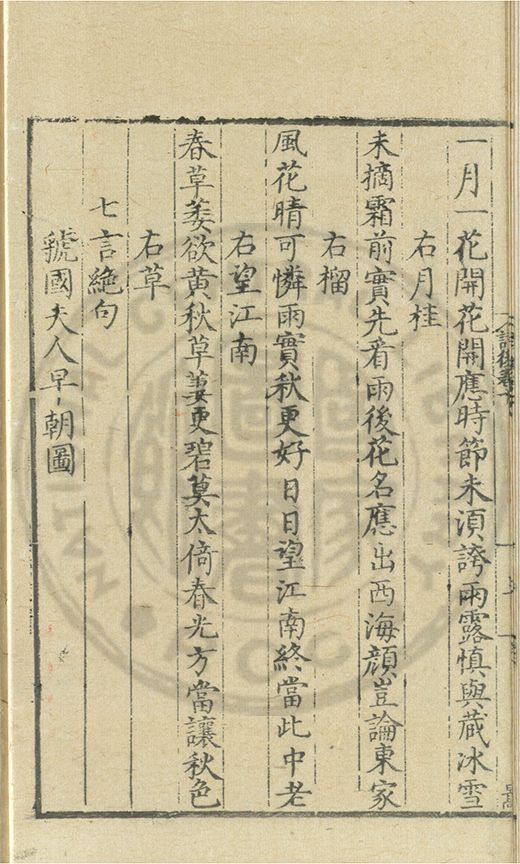 一月一花開花開應時節未湏誇雨露慎與蔵冰雪
右月桂
未摘霜前實先看雨後花名應出西海顔豈論東家
右榴
風花晴可憐雨實秋更好日日望江南終當此中老
右望江南
春草萎欲黄秋草萋更碧莫大倚春光方當讓秋色
右草
七言絶句
虢國夫人早朝圖